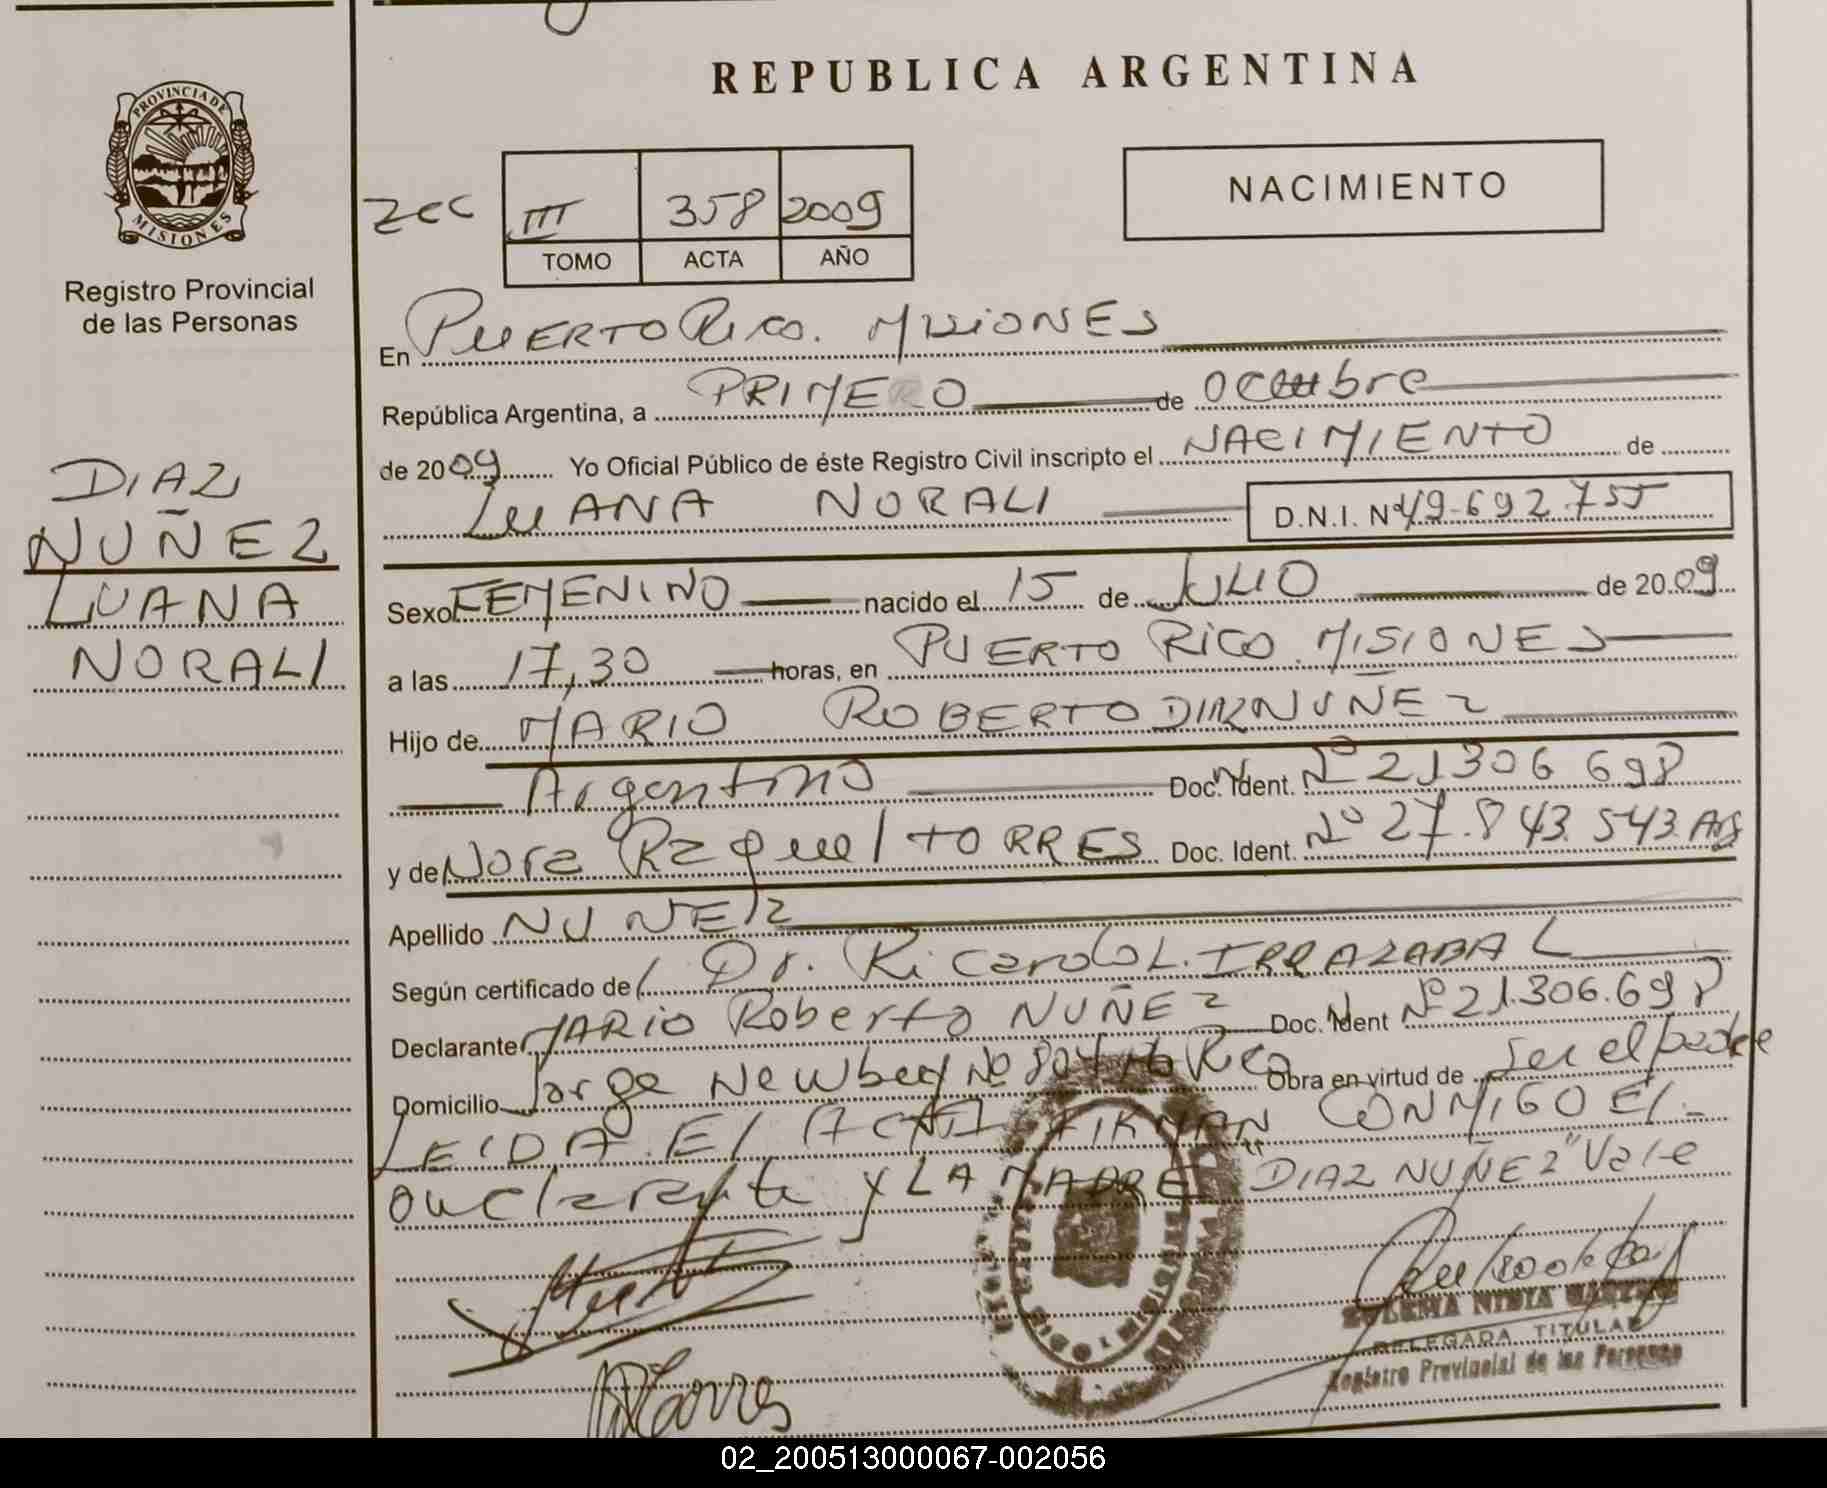 REPUBLICA ARGENTINA
PROVINCIA DE
MISIONES
Registro Provincial
de las Personas
NACIMIENTO
zcc III 358 2009
TOMO ACTA AÑO
En PUERTO RICO. MISIONES
República Argentina, a PRIMERO de octubre
de 2009 Yo Oficial Público de éste Registro Civil inscripto el NACIMIENTO de
LUANA NORALI D.N.I. Nº 49.692.755
DIAZ
NUÑEZ
LUANA
NORALI
Sexo FEMENINO nacido el 15 de JULIO de 2009
a las 17,30 horas, en PUERTO RICO MISIONES
Hijo de MARIO ROBERTO DIAZ NUÑEZ
Argentino Doc. Ident. Nº 21306698
y de Nora Raquel TORRES Doc. Ident. Nº 27.843.543. Arg
Apellido NUÑEZ
Según certificado de Dr. Ricardo L. IRRAZABAL
Declarante MARIO Roberto NUÑEZ Doc. Ident Nº 21.306.698
Domicilio Jorge Newbey Nº 804 Pto Rico Obra en virtud de ser el padre
LEIDA El ACTA FIRMAN CONMIGO El
declarante y LA MADRE "DIAZ NUÑEZ" Vale
NRTorres
ZULEMA NIDIA
DELEGADA TITULAR
Registro Provincial de las Personas
02_200513000067-002056